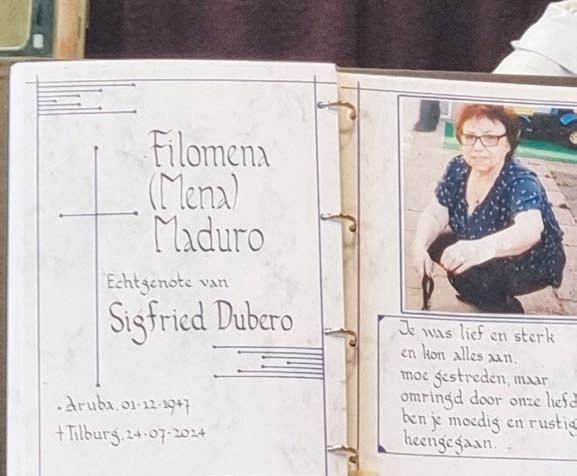 Filomena
(Mena)
Maduro
Echtgenote van
Sigfried Dubero
. Aruba, 01-12-1947
† Tilburg, 24-07-2024
Je was lief en sterk
en kon alles aan,
moe gestreden, maar
omringd door onze liefd
ben je moedig en rustig
heengegaan.